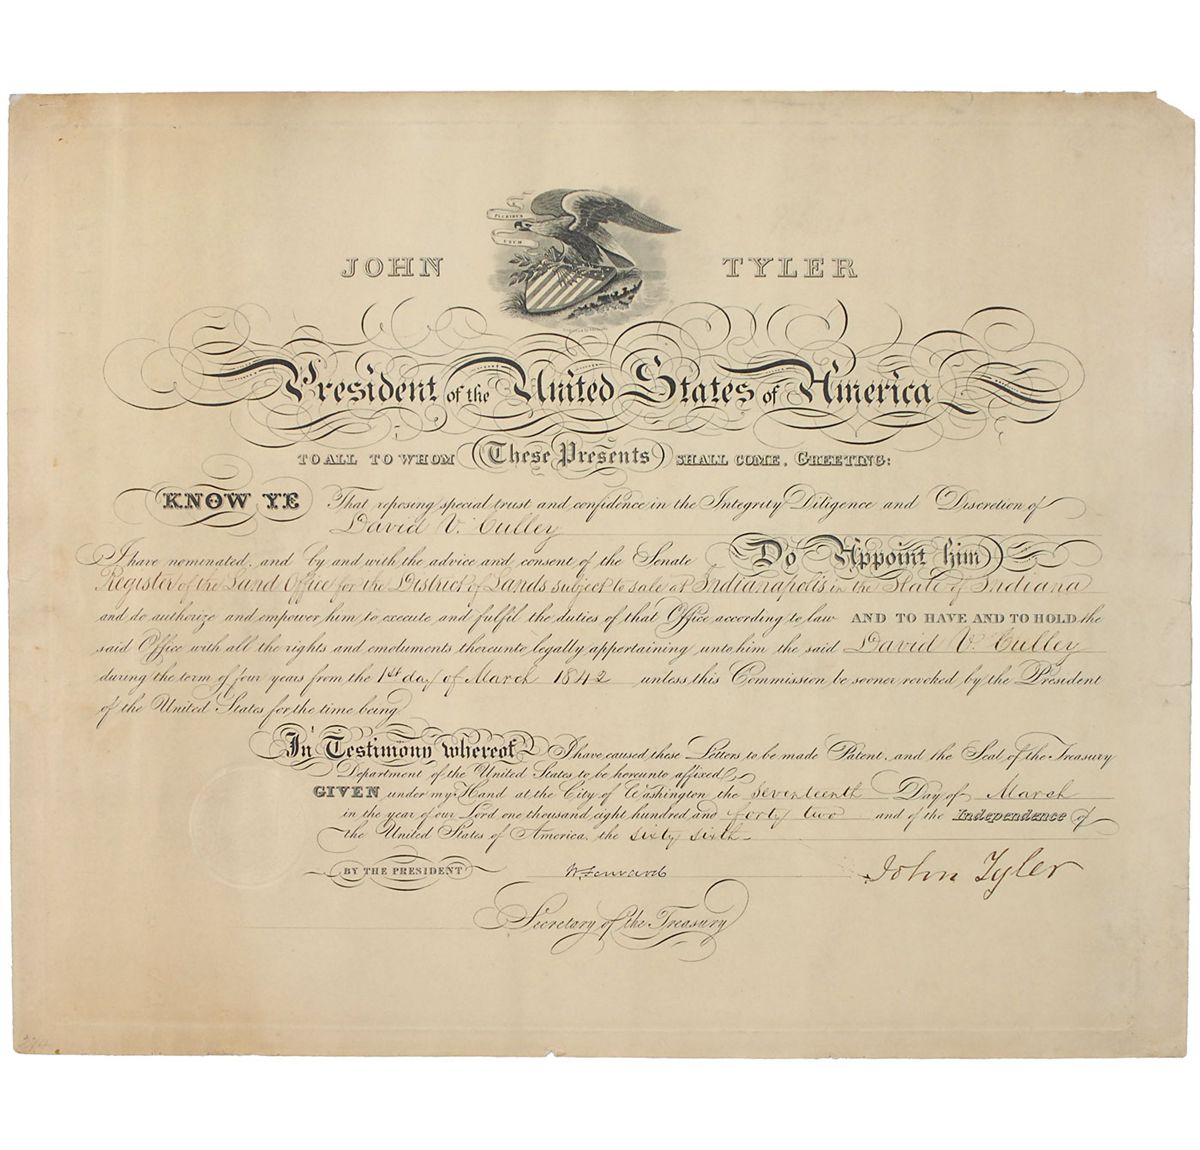 PLURIBUS
UNUM
JOHN TYLER
President of the United States of America
TO ALL TO WHOM These Presents SHALL COME, GREETING:
KNOW YE That reposing special trust and confidence in the Integrity Diligence and Discretion of
David V. Culley
I have nominated, and by and with the advice and consent of the Senate Do Appoint him
Register of the Land Office for the District of Lands subject to sale at Indianapolis in the State of Indiana
and do authorize and empower him to execute and fulfil the duties of that Office according to law AND TO HAVE AND TO HOLD the
said Office with all the rights and emoluments thereunto legally appertaining unto him the said David V. Culley
during the term of four years from the 1st day of March 1842 unless this Commission be sooner revoked by the President
of the United States for the time being.
In Testimony whereof I have caused these Letters to be made Patent, and the Seal of the Treasury
Department of the United States to be hereunto affixed
GIVEN under my Hand at the City of Washington the seventeenth Day of March
in the year of our Lord one thousand eight hundred and forty two and of the Independence of
the United States of America, the sixty sixth.
BY THE PRESIDENT W. Forward John Tyler
Secretary of the Treasury